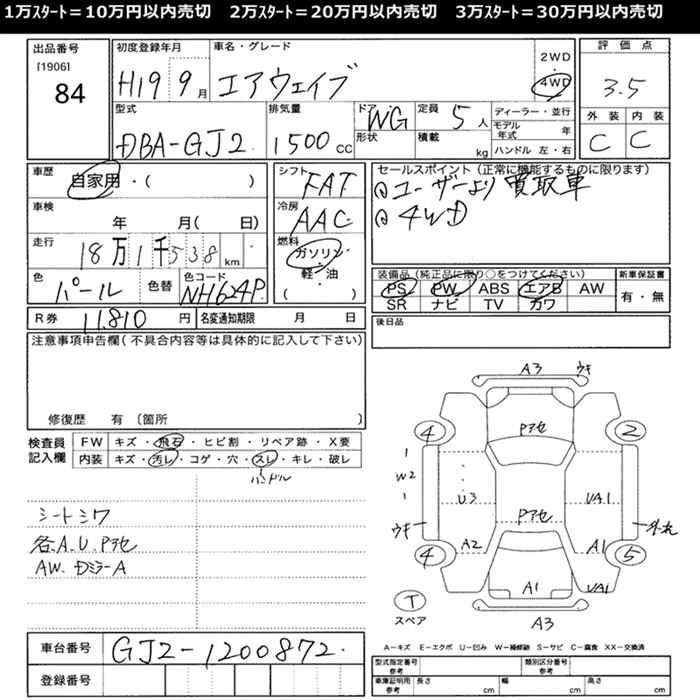 1万ｽﾀｰﾄ＝10万円以内売切　2万ｽﾀｰﾄ＝20万円以内売切　3万ｽﾀｰﾄ＝30万円以内売切
出品番号
［1906］
84
初度登録年月
H19 9月
車名・グレード
エアウェイブ
2WD
4WD
評価点
3.5
外装 内装
C C
型式
DBA-GJ2
排気量
1500 CC
ドア WG
形状
定員 5人
積載 kg
ディーラー・並行
モデル年式 年
ハンドル 左・右
車歴
自家用・（ ）
車検
年 月（ 日）
走行
18万1千538km
色
パール
色替
色コード
NH624P
シフト
FAT
冷房
AAC
燃料
ガソリン
軽・油
（ ）
セールスポイント（正常に機能するものに限ります）
ユーザーより買取車
4WD
装備品（純正品に限り○をつけてください）
PS PW ABS エアB AW
SR ナビ TV カワ
新車保証書
有・無
R券 11,810円
名変通知期限 月 日
後日品
注意事項申告欄（不具合内容等は具体的に記入して下さい）
修復歴 有〔箇所 〕
検査員
記入欄
FW キズ・飛石・ヒビ割・リペア跡・X要
内装 キズ・汚レ・コゲ・穴・スレ・キレ・破レ
ハンドル
シートシワ
各.A.U.Pアセ
AW.DミラーA
A3 ウキ
4 Pアセ 2
1
W2
1
U3 UA1
ウキ Pアセ
A2 A1
4 5
A1 UA1
T
スペア
A3
A－キズ E－エクボ U－凹み W－補修跡 S－サビ C－腐食 XX－交換済
車台番号
GJ2-1200872
登録番号
型式指定番号
参考
類別区分番号
参考
車庫証明用
参考
長さ cm 幅 cm 高さ cm